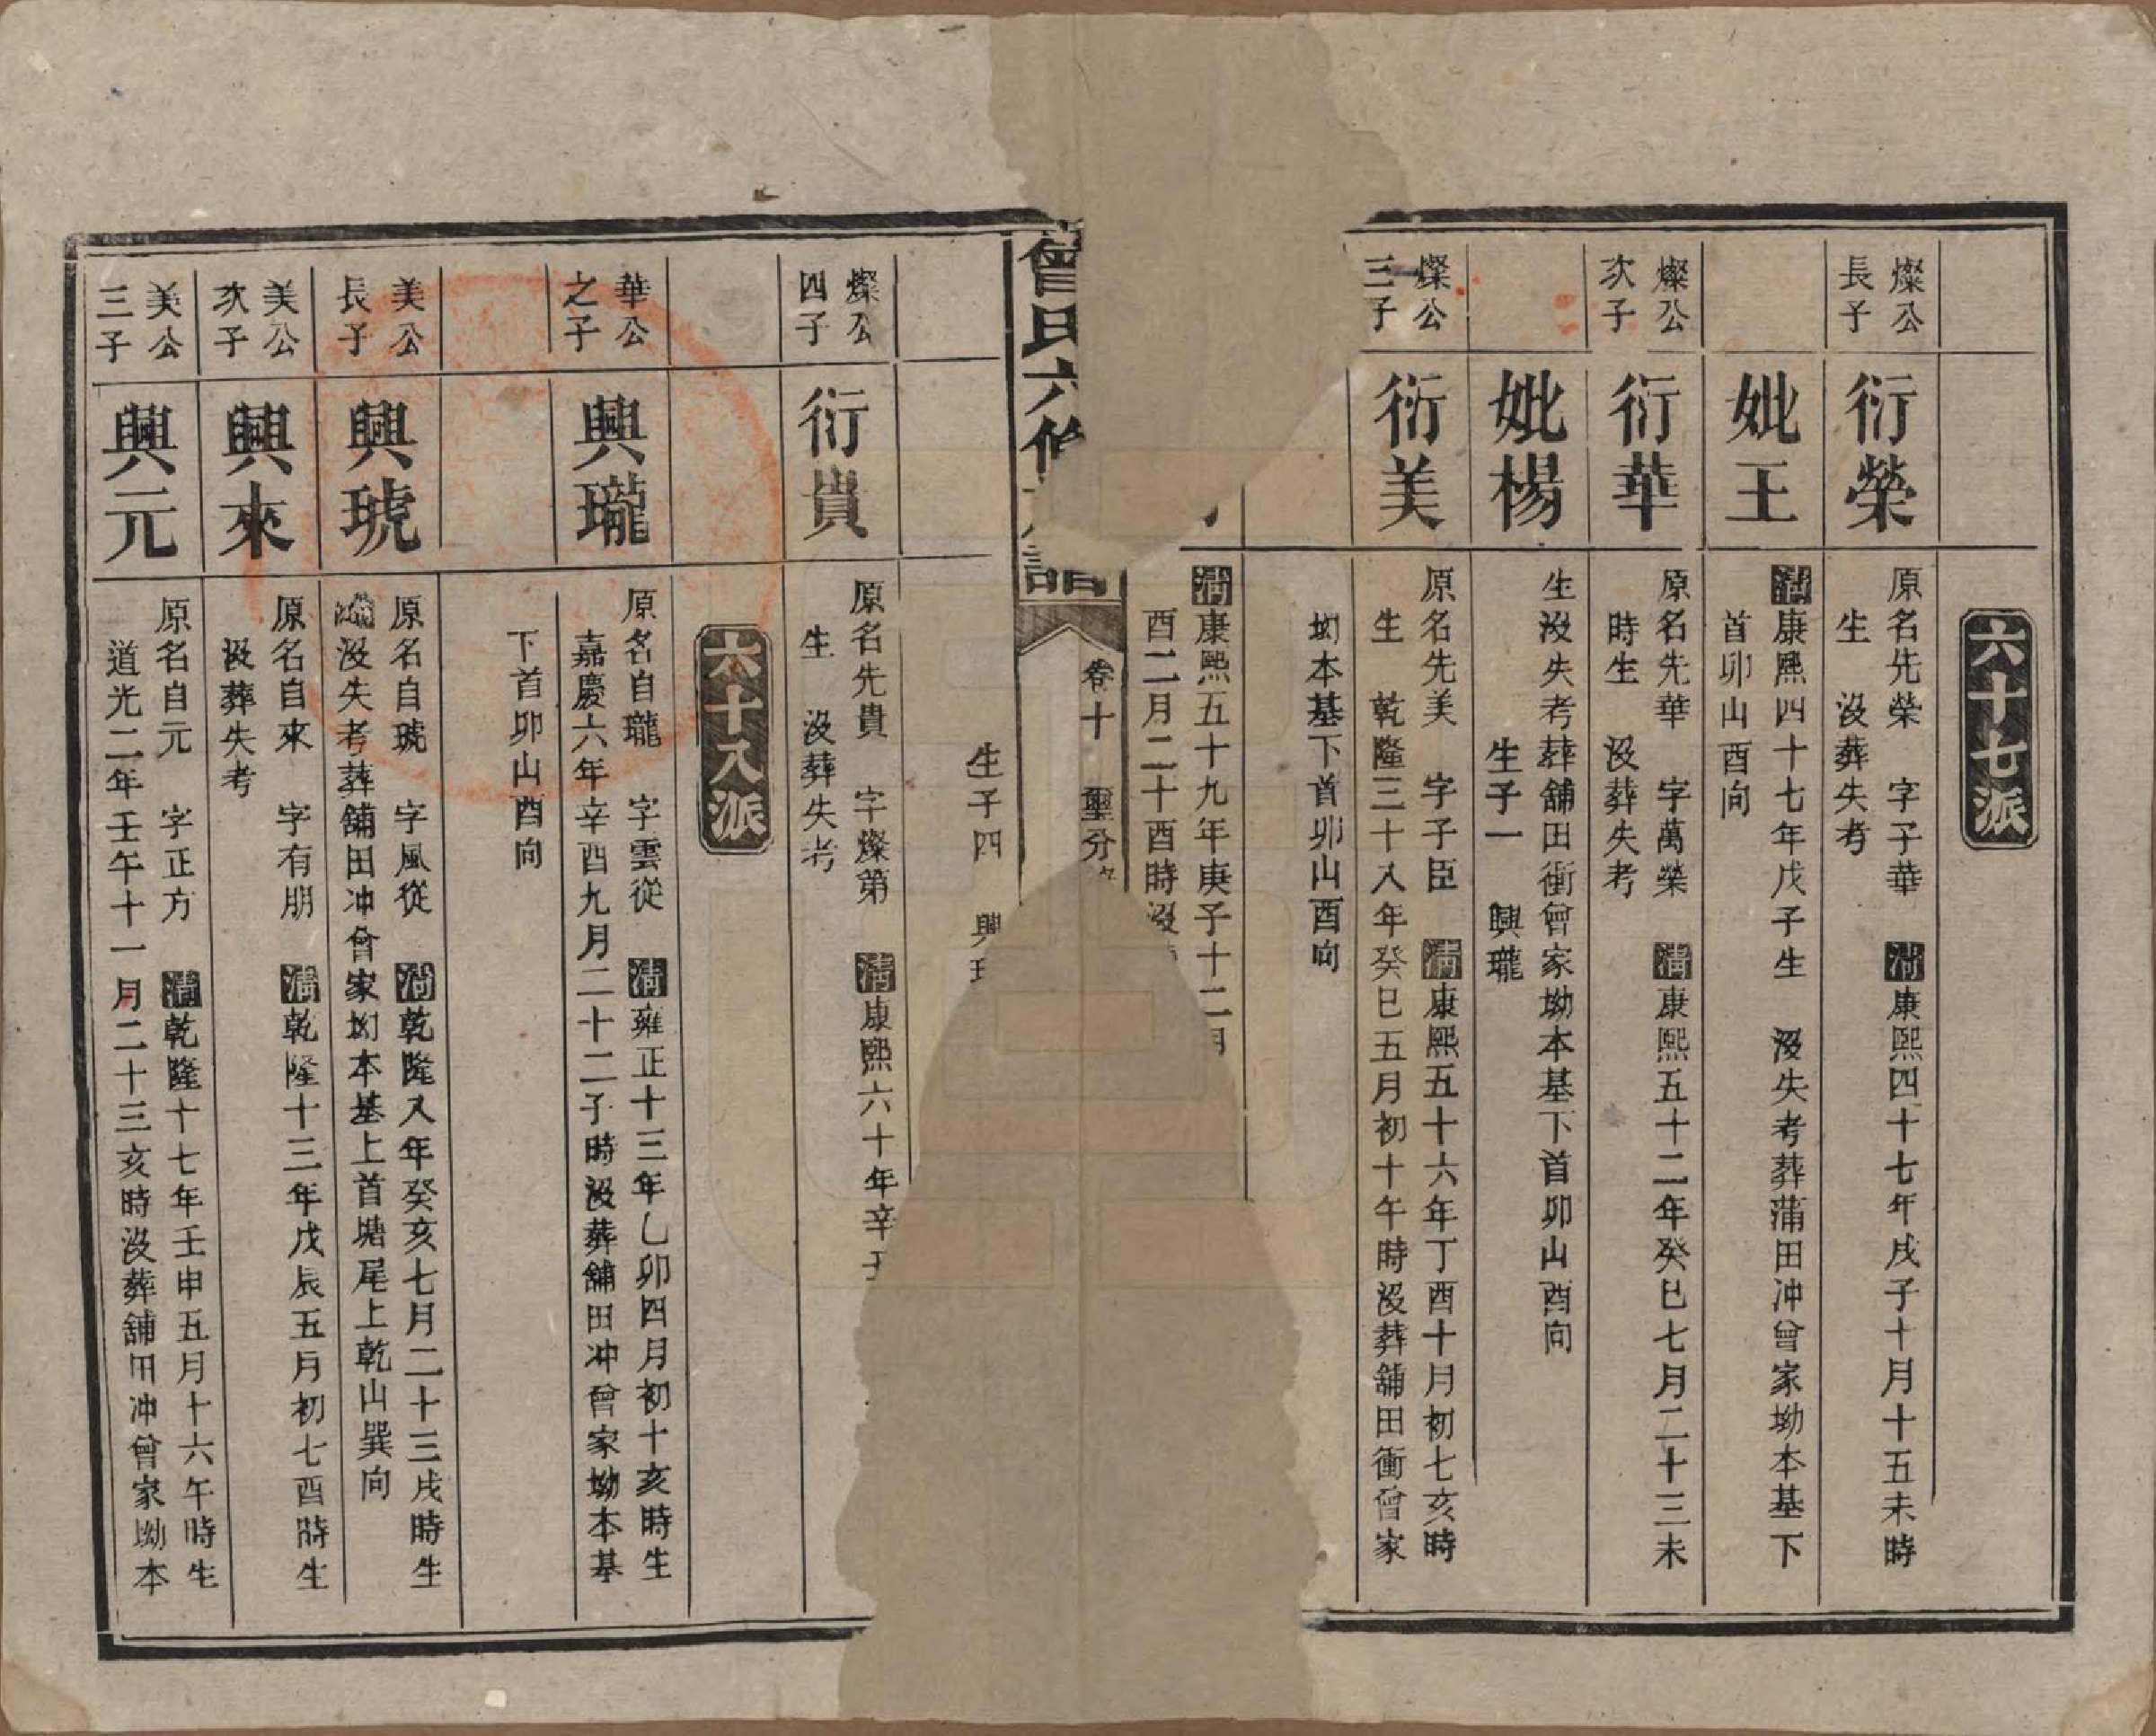 六十七派
燦公
長子
衍榮
原名先榮　字子華　清康熙四十七年戊子十月十五未時
生　沒葬失考
妣王
清康熙四十七年戊子生　沒失考葬蒲田冲曾家坳本基下
首卯山酉向
燦公
次子
衍華
原名先華　字萬榮　清康熙五十二年癸巳七月二十三未
時生　沒葬失考
妣楊
生沒失考葬舖田衝曾家坳本基下首卯山酉向
生子一　興瓏
燦公
三子
衍美
原名先美　字子臣　清康熙五十六年丁酉十月初七亥時
生　乾隆三十八年癸巳五月初十午時沒葬舖田衝曾家
坳本基下首卯山酉向
清康熙五十九年庚子十二月
酉二月二十酉時沒
曾氏六修
譜
卷十
生子四　興
燦公
四子
衍貴
原名先貴　字燦第　清康熙六十年辛
生　沒葬失考
六十八派
華公
之子
興瓏
原名自瓏　字雲從　清雍正十三年乙卯四月初十亥時生
嘉慶六年辛酉九月二十二子時沒葬舖田冲曾家坳本基
下首卯山酉向
美公
長子
興琥
原名自琥　字風從　清乾隆八年癸亥七月二十三戌時生
沒失考葬舖田冲曾家坳本基上首塘尾上乾山巽向
美公
次子
興來
原名自來　字有朋　清乾隆十三年戊辰五月初七酉時生
沒葬失考
美公
三子
興元
原名自元　字正方　清乾隆十七年壬申五月十六午時生
道光二年壬午十一月二十三亥時沒葬舖田冲曾家坳本